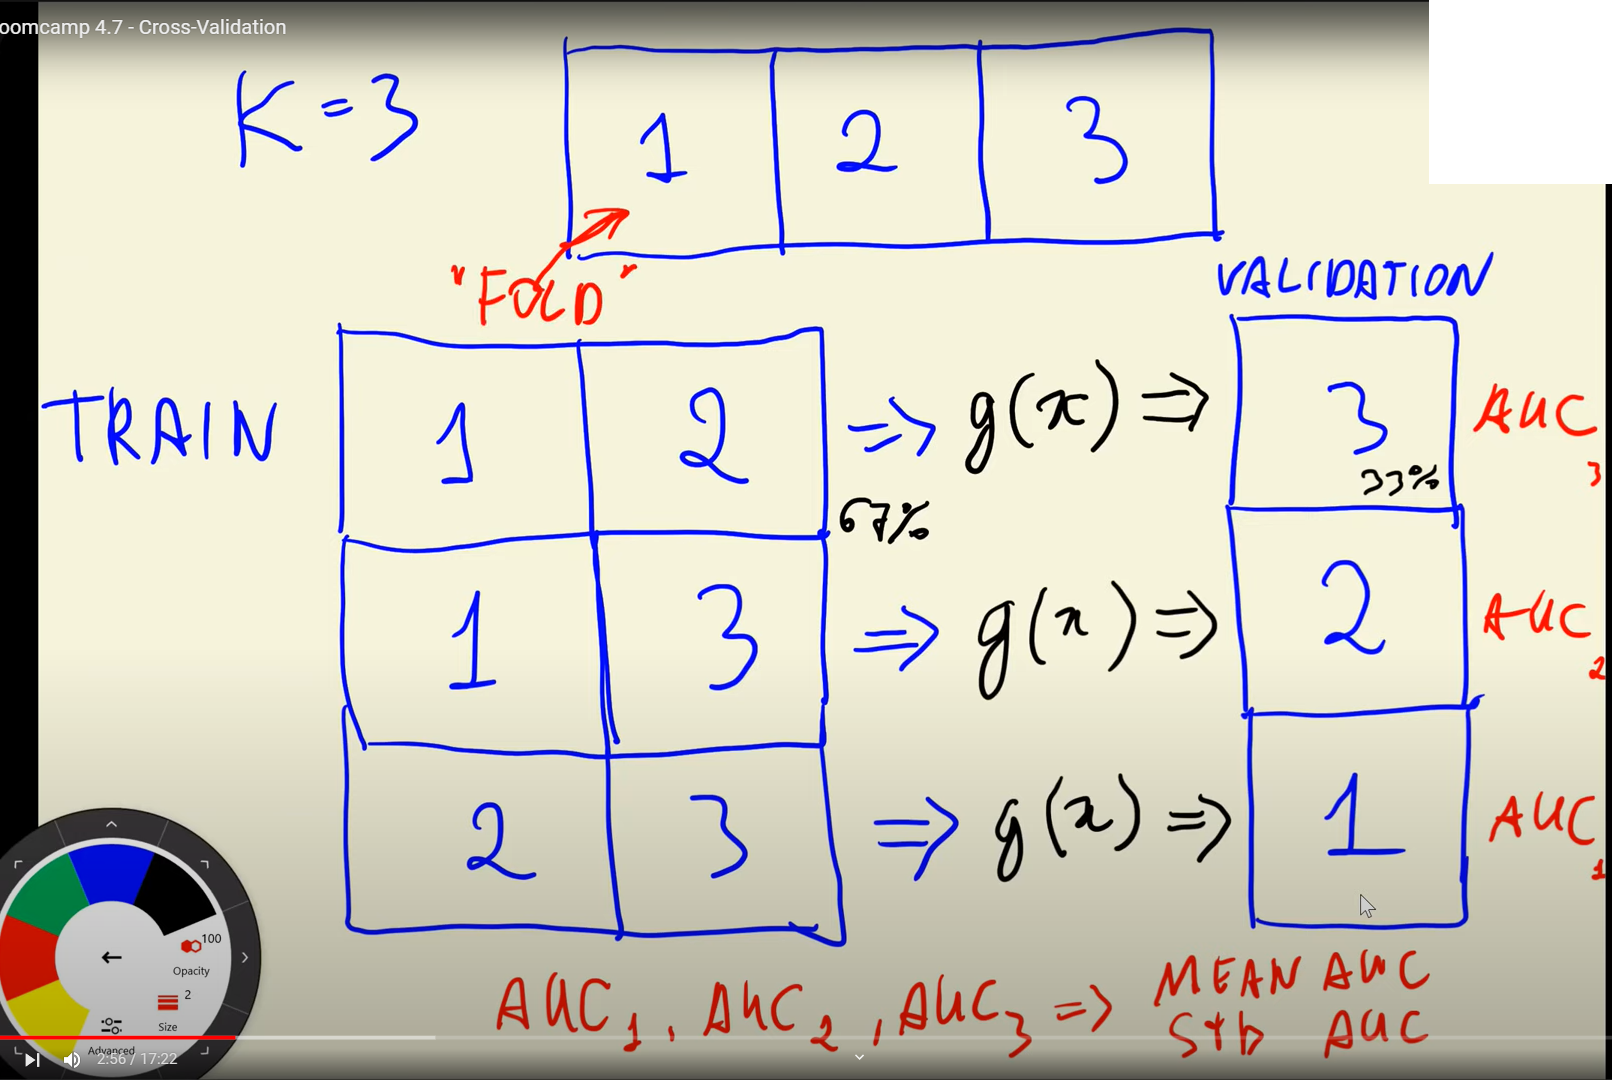 oomcamp 4.7 - Cross-Validation
K = 3
1 2 3
"FOLD"
VALIDATION
TRAIN
1 2 => g(x) => 3 AUC3
67% 33%
1 3 => g(x) => 2 AUC2
2 3 => g(x) => 1 AUC1
AUC1, AUC2, AUC3 => MEAN AUC
Std AUC
100
Opacity
2
Size
Advanced
2:56 / 17:22